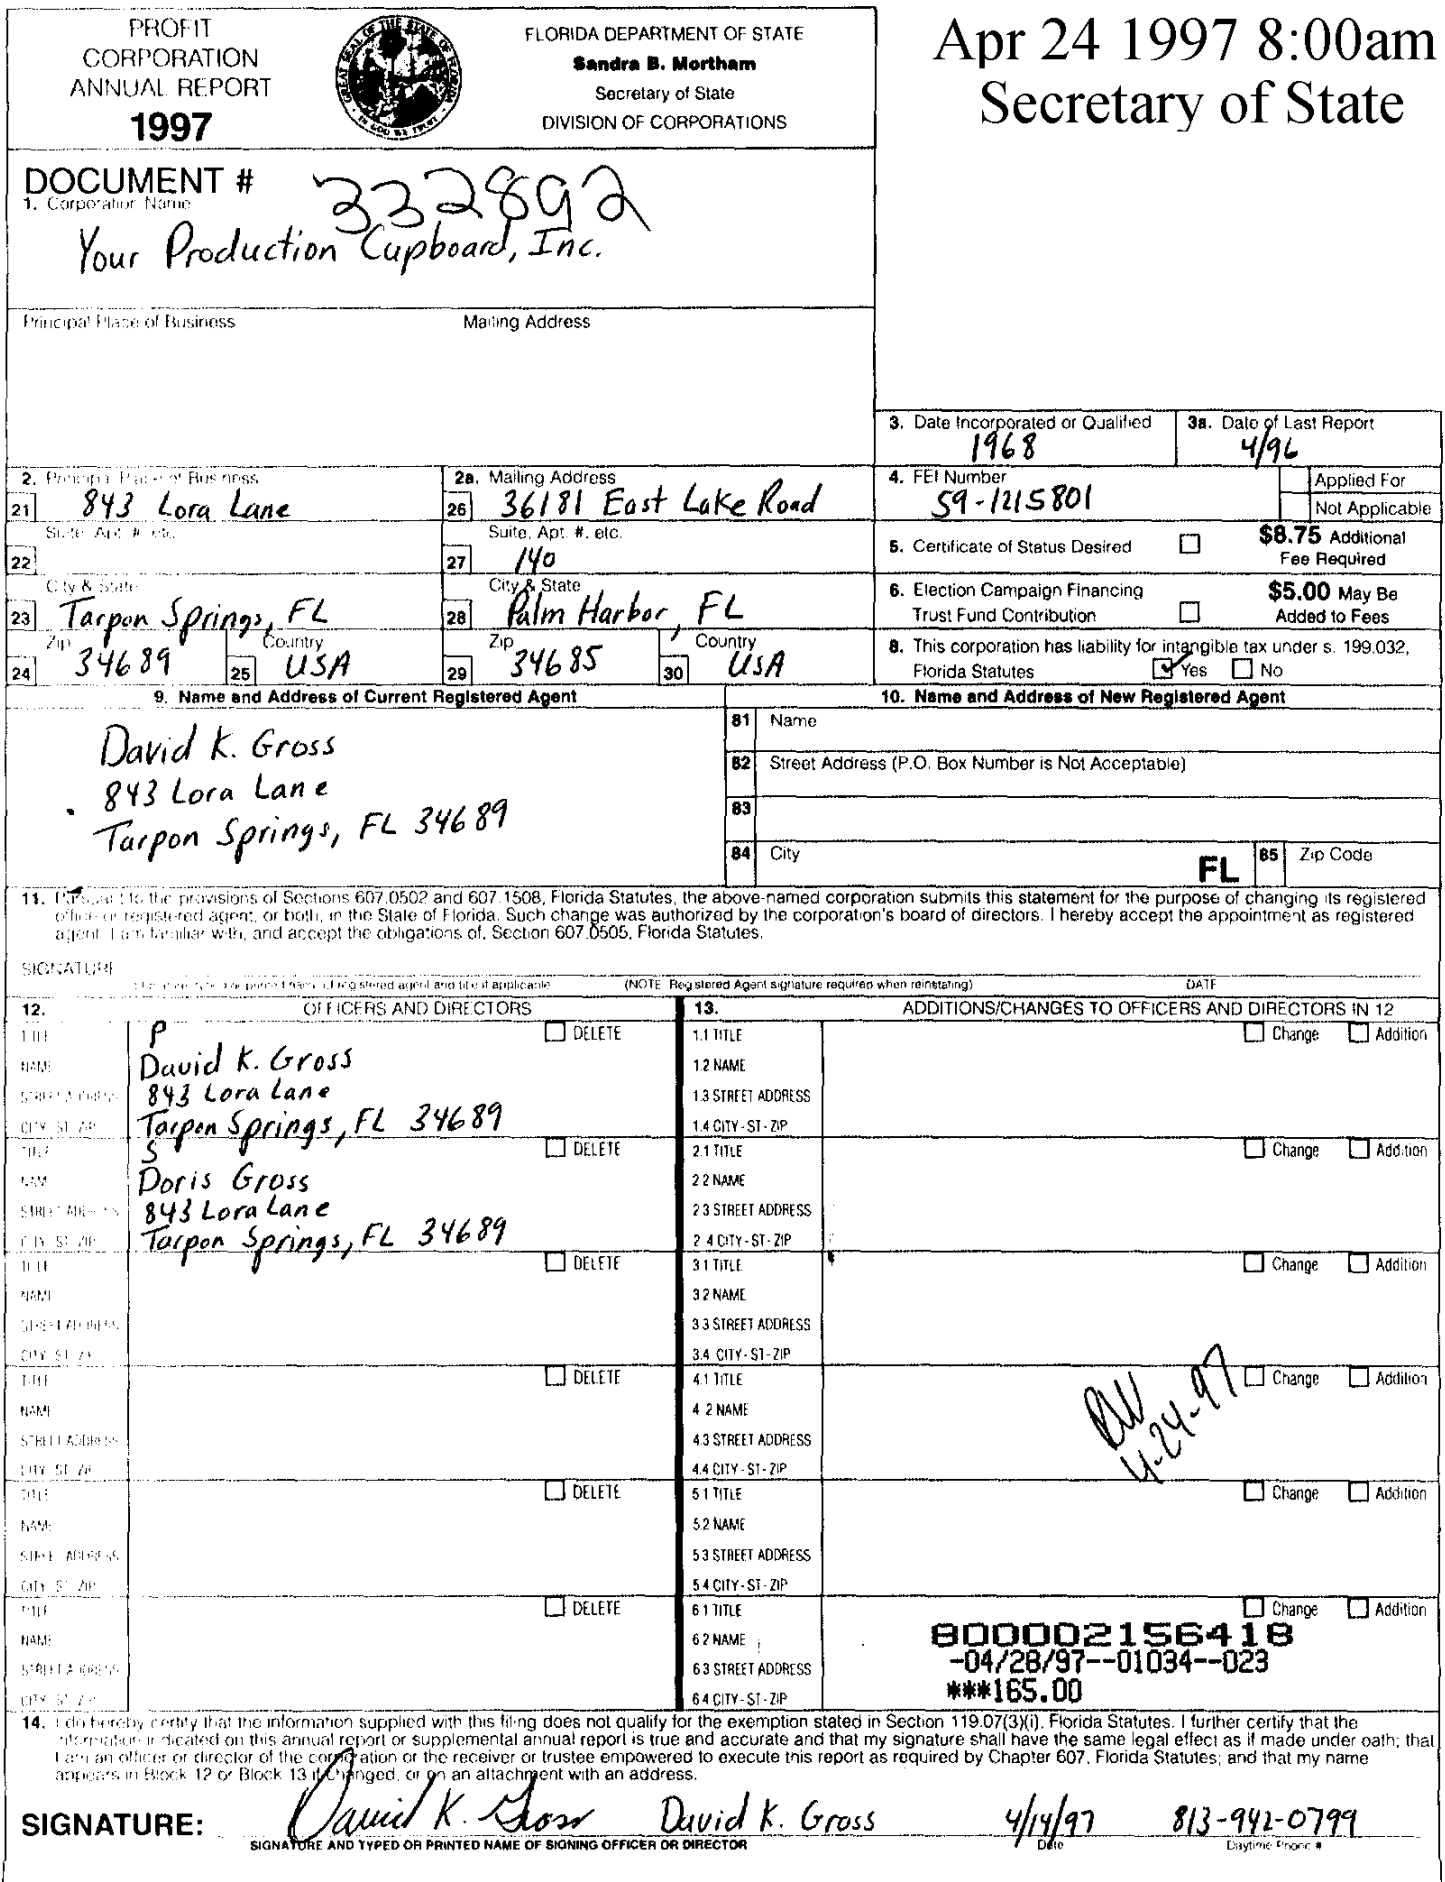 PROFIT
CORPORATION
ANNUAL REPORT
1997
GREAT SEAL OF THE STATE OF FLORIDA
IN GOD WE TRUST
FLORIDA DEPARTMENT OF STATE
Sandra B. Mortham
Secretary of State
DIVISION OF CORPORATIONS
Apr 24 1997 8:00am
Secretary of State
DOCUMENT # 332892
1. Corporation Name
Your Production Cupboard, Inc.
Principal Place of Business
Mailing Address
3. Date Incorporated or Qualified
1968
3a. Date of Last Report
4/96
2. Principal Place of Business
21 843 Lora Lane
2a. Mailing Address
26 36181 East Lake Road
4. FEI Number
59-1215801
Applied For
Not Applicable
Suite, Apt. #, etc.
22
Suite, Apt. #, etc.
27 140
5. Certificate of Status Desired
$8.75 Additional
Fee Required
City & State
23 Tarpon Springs, FL
City & State
28 Palm Harbor, FL
6. Election Campaign Financing
Trust Fund Contribution
$5.00 May Be
Added to Fees
Zip
24 34689
Country
25 USA
Zip
29 34685
Country
30 USA
8. This corporation has liability for intangible tax under s. 199.032,
Florida Statutes Yes No
9. Name and Address of Current Registered Agent
David K. Gross
843 Lora Lane
Tarpon Springs, FL 34689
10. Name and Address of New Registered Agent
81 Name
82 Street Address (P.O. Box Number is Not Acceptable)
83
84 City
FL
85 Zip Code
11. Pursuant to the provisions of Sections 607.0502 and 607.1508, Florida Statutes, the above-named corporation submits this statement for the purpose of changing its registered
office or registered agent, or both, in the State of Florida. Such change was authorized by the corporation's board of directors. I hereby accept the appointment as registered
agent. I am familiar with, and accept the obligations of, Section 607.0505, Florida Statutes.
SIGNATURE
registered agent and title if applicable
(NOTE Registered Agent signature required when reinstating)
DATE
12. OFFICERS AND DIRECTORS
13. ADDITIONS/CHANGES TO OFFICERS AND DIRECTORS IN 12
TITLE P DELETE
NAME David K. Gross
STREET ADDRESS 843 Lora Lane
CITY-ST-ZIP Tarpon Springs, FL 34689
1.1 TITLE Change Addition
1.2 NAME
1.3 STREET ADDRESS
1.4 CITY-ST-ZIP
TITLE S DELETE
NAME Doris Gross
STREET ADDRESS 843 Lora Lane
CITY-ST-ZIP Tarpon Springs, FL 34689
2.1 TITLE Change Addition
2 2 NAME
2 3 STREET ADDRESS
2 4 CITY-ST-ZIP
TITLE DELETE
NAME
STREET ADDRESS
CITY-ST-ZIP
3 1 TITLE Change Addition
3 2 NAME
3 3 STREET ADDRESS
3.4 CITY-ST-ZIP
TITLE DELETE
NAME
STREET ADDRESS
CITY-ST-ZIP
4.1 TITLE Change Addition
4 2 NAME
4.3 STREET ADDRESS
4.4 CITY-ST-ZIP
4-24-97
TITLE DELETE
NAME
STREET ADDRESS
CITY-ST-ZIP
5 1 TITLE Change Addition
5.2 NAME
5 3 STREET ADDRESS
5 4 CITY-ST-ZIP
TITLE DELETE
NAME
STREET ADDRESS
CITY-ST-ZIP
6 1 TITLE Change Addition
6 2 NAME
6 3 STREET ADDRESS
6 4 CITY-ST-ZIP
800002156418
-04/28/97--01034--023
***165.00
14. I do hereby certify that the information supplied with this filing does not qualify for the exemption stated in Section 119.07(3)(i), Florida Statutes. I further certify that the
information indicated on this annual report or supplemental annual report is true and accurate and that my signature shall have the same legal effect as if made under oath; that
I am an officer or director of the corporation or the receiver or trustee empowered to execute this report as required by Chapter 607, Florida Statutes; and that my name
appears in Block 12 or Block 13 if changed, or on an attachment with an address.
SIGNATURE: David K. Gross David K. Gross 4/14/97 813-942-0799
SIGNATURE AND TYPED OR PRINTED NAME OF SIGNING OFFICER OR DIRECTOR
Date
Daytime Phone #